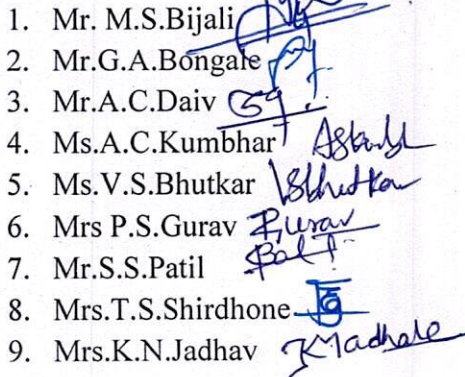 1. Mr. M.S.Bijali
2. Mr.G.A.Bongale
3. Mr.A.C.Daiv
4. Ms.A.C.Kumbhar
5. Ms.V.S.Bhutkar VSBhutkar
6. Mrs P.S.Gurav Gurav
7. Mr.S.S.Patil
8. Mrs.T.S.Shirdhone
9. Mrs.K.N.Jadhav